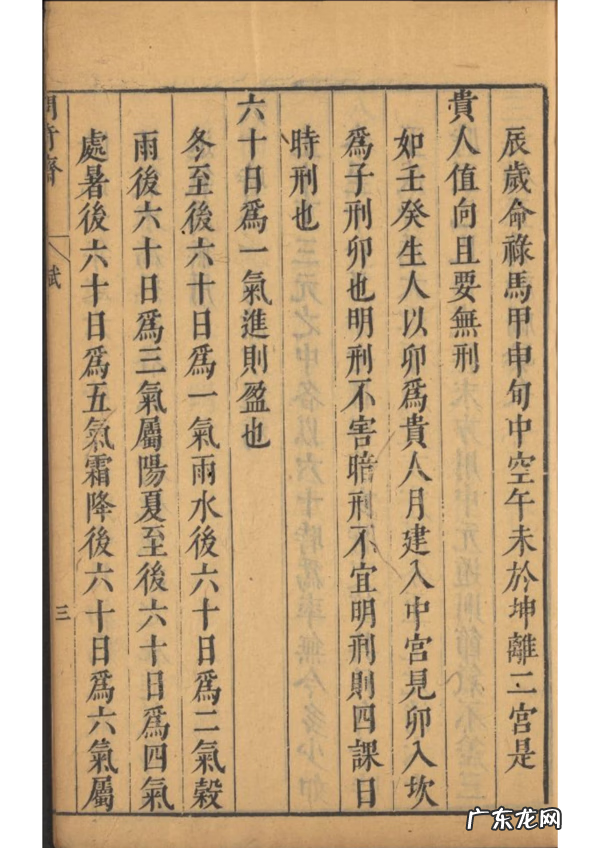 辰歲命祿馬甲申旬中空午未於坤離二宮是
貴人值向且要無刑
如壬癸生人以卯爲貴人月建入中宮見卯入坎
爲子刑卯也明刑不害暗刑不宜明刑則四課日
時刑也
六十日爲一氣進則盈也
冬至後六十日爲一氣雨水後六十日爲二氣穀
雨後六十日爲三氣屬陽夏至後六十日爲四氣
處暑後六十日爲五氣霜降後六十日爲六氣屬
賦
三
广东龙网